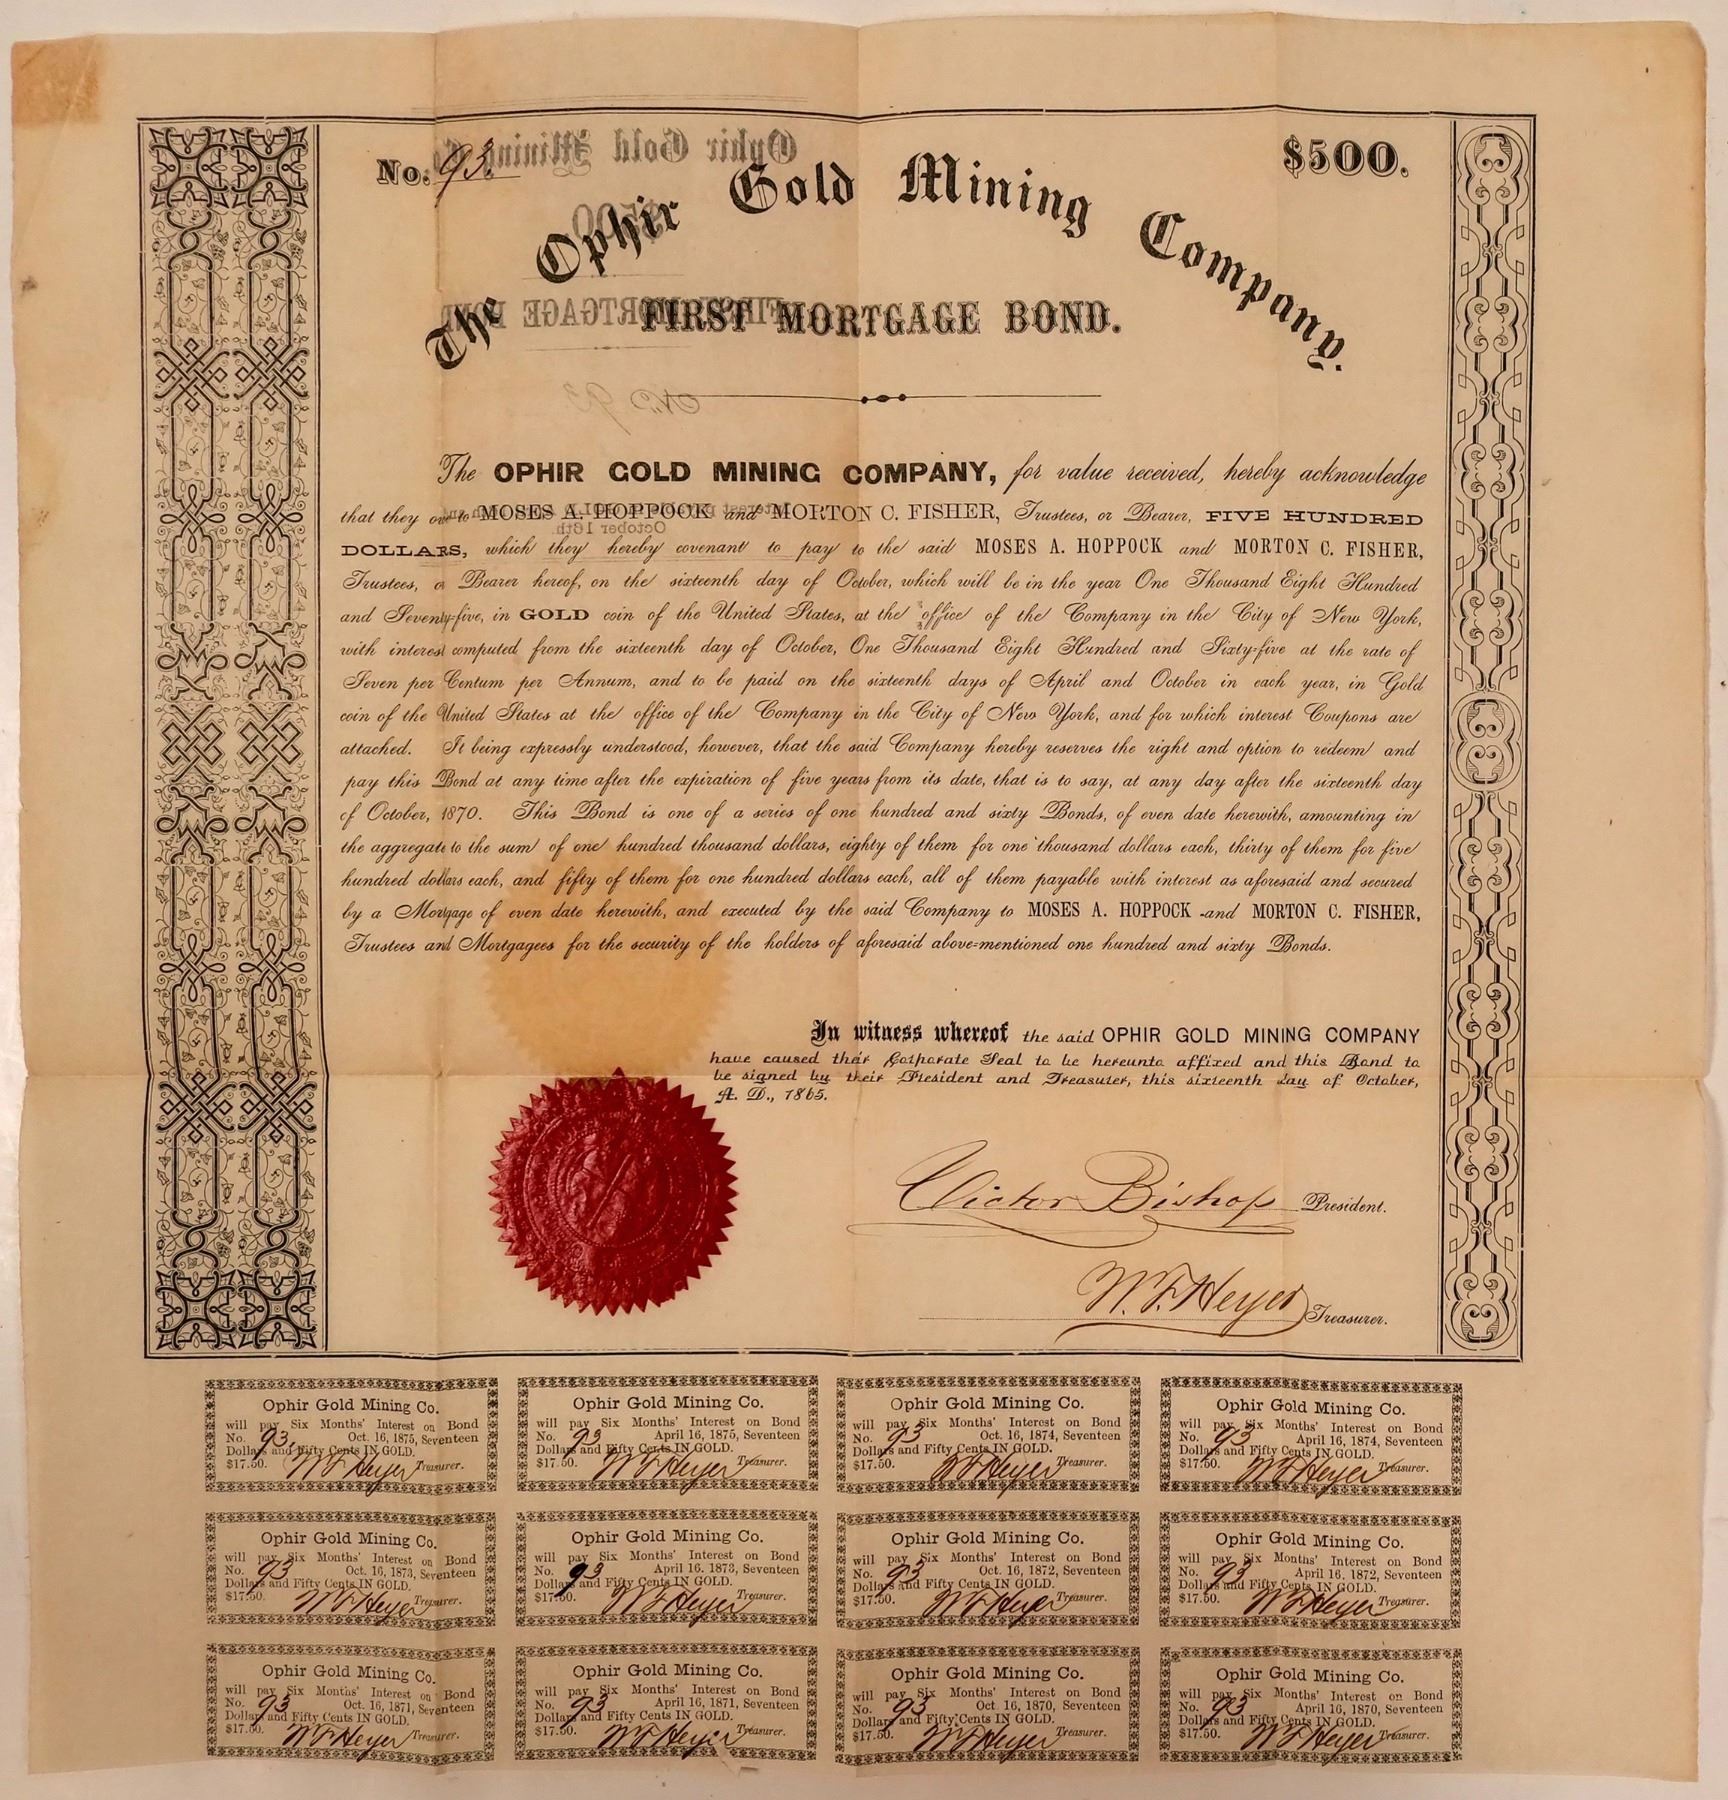 No. 93.
$500.
The Ophir Gold Mining Company.
FIRST MORTGAGE BOND.
The OPHIR GOLD MINING COMPANY, for value received, hereby acknowledge
that they owe to MOSES A. HOPPOCK and MORTON C. FISHER, Trustees, or Bearer, FIVE HUNDRED
DOLLARS, which they hereby covenant to pay to the said MOSES A. HOPPOCK and MORTON C. FISHER,
Trustees, or Bearer hereof, on the sixteenth day of October, which will be in the year One Thousand Eight Hundred
and Seventy-five, in GOLD coin of the United States, at the office of the Company in the City of New York,
with interest computed from the sixteenth day of October, One Thousand Eight Hundred and Sixty-five at the rate of
Seven per Centum per Annum, and to be paid on the sixteenth days of April and October in each year, in Gold
coin of the United States at the office of the Company in the City of New York, and for which interest Coupons are
attached. It being expressly understood, however, that the said Company hereby reserves the right and option to redeem and
pay this Bond at any time after the expiration of five years from its date, that is to say, at any day after the sixteenth day
of October, 1870. This Bond is one of a series of one hundred and sixty Bonds, of even date herewith, amounting in
the aggregate to the sum of one hundred thousand dollars, eighty of them for one thousand dollars each, thirty of them for five
hundred dollars each, and fifty of them for one hundred dollars each, all of them payable with interest as aforesaid and secured
by a Mortgage of even date herewith, and executed by the said Company to MOSES A. HOPPOCK and MORTON C. FISHER,
Trustees and Mortgagees for the security of the holders of aforesaid above-mentioned one hundred and sixty Bonds.
In witness whereof the said OPHIR GOLD MINING COMPANY
have caused their Corporate Seal to be hereunto affixed and this Bond to
be signed by their President and Treasurer, this sixteenth day of October,
A. D., 1865.
Victor Bishop President.
W. F. Heyer Treasurer.
Ophir Gold Mining Co.
will pay Six Months' Interest on Bond
No. 93 Oct. 16, 1875, Seventeen
Dollars and Fifty Cents IN GOLD.
$17.50. W F Heyer Treasurer.
Ophir Gold Mining Co.
will pay Six Months' Interest on Bond
No. 93 April 16, 1875, Seventeen
Dollars and Fifty Cents IN GOLD.
$17.50. W F Heyer Treasurer.
Ophir Gold Mining Co.
will pay Six Months' Interest on Bond
No. 93 Oct. 16, 1874, Seventeen
Dollars and Fifty Cents IN GOLD.
$17.50. W F Heyer Treasurer.
Ophir Gold Mining Co.
will pay Six Months' Interest on Bond
No. 93 April 16, 1874, Seventeen
Dollars and Fifty Cents IN GOLD.
$17.50. W F Heyer Treasurer.
Ophir Gold Mining Co.
will pay Six Months' Interest on Bond
No. 93 Oct. 16, 1873, Seventeen
Dollars and Fifty Cents IN GOLD.
$17.50. W F Heyer Treasurer.
Ophir Gold Mining Co.
will pay Six Months' Interest on Bond
No. 93 April 16, 1873, Seventeen
Dollars and Fifty Cents IN GOLD.
$17.50. W F Heyer Treasurer.
Ophir Gold Mining Co.
will pay Six Months' Interest on Bond
No. 93 Oct. 16, 1872, Seventeen
Dollars and Fifty Cents IN GOLD.
$17.50. W F Heyer Treasurer.
Ophir Gold Mining Co.
will pay Six Months' Interest on Bond
No. 93 April 16, 1872, Seventeen
Dollars and Fifty Cents IN GOLD.
$17.50. W F Heyer Treasurer.
Ophir Gold Mining Co.
will pay Six Months' Interest on Bond
No. 93 Oct. 16, 1871, Seventeen
Dollars and Fifty Cents IN GOLD.
$17.50. W F Heyer Treasurer.
Ophir Gold Mining Co.
will pay Six Months' Interest on Bond
No. 93 April 16, 1871, Seventeen
Dollars and Fifty Cents IN GOLD.
$17.50. W F Heyer Treasurer.
Ophir Gold Mining Co.
will pay Six Months' Interest on Bond
No. 93 Oct. 16, 1870, Seventeen
Dollars and Fifty Cents IN GOLD.
$17.50. W F Heyer Treasurer.
Ophir Gold Mining Co.
will pay Six Months' Interest on Bond
No. 93 April 16, 1870, Seventeen
Dollars and Fifty Cents IN GOLD.
$17.50. W F Heyer Treasurer.